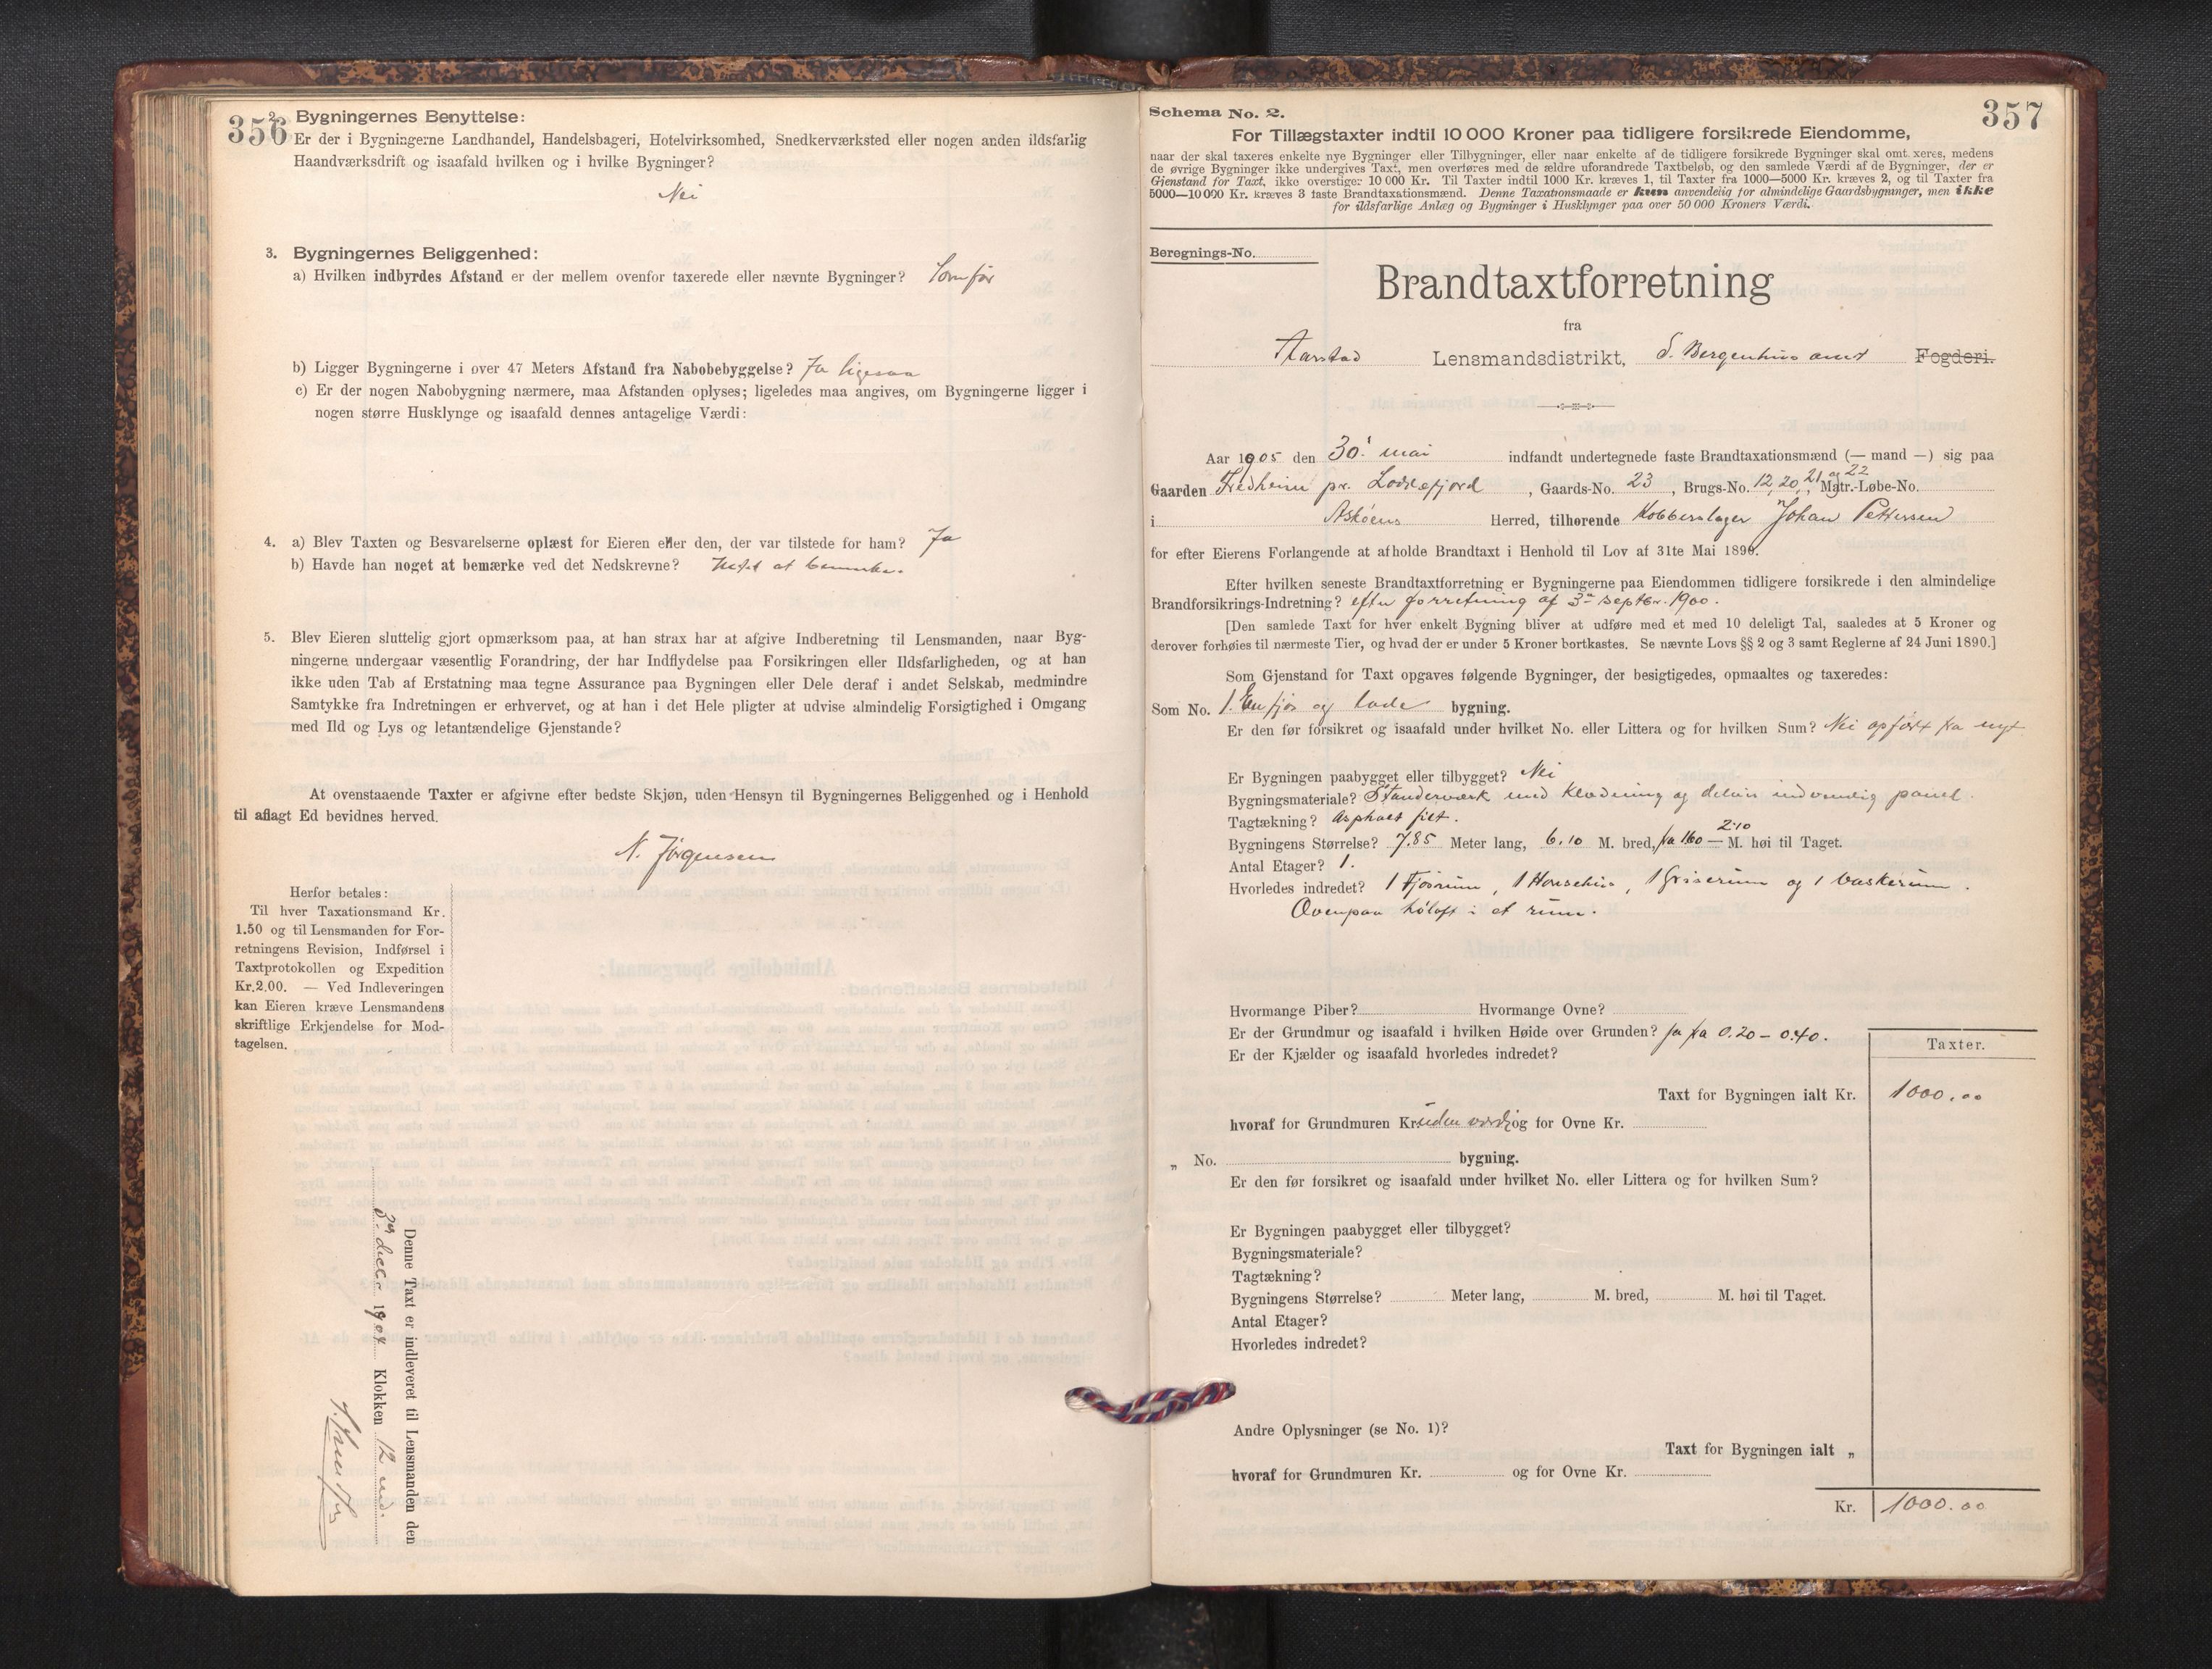 356
2. Bygningernes Benyttelse:
Er der i Bygningerne Landhandel, Handelsbageri, Hotelvirksomhed, Snedkerværksted eller nogen anden ildsfarlig
Haandværksdrift og isaafald hvilken og i hvilke Bygninger?
Nei
3. Bygningernes Beliggenhed:
a) Hvilken indbyrdes Afstand er der mellem ovenfor taxerede eller nævnte Bygninger? Som før
b) Ligger Bygningerne i over 47 Meters Afstand fra Nabobebyggelse? Ja ligesaa
c) Er der nogen Nabobygning nærmere, maa Afstanden oplyses; ligeledes maa angives, om Bygningerne ligger i
nogen større Husklynge og isaafald dennes antagelige Værdi:
4. a) Blev Taxten og Besvarelserne oplæst for Eieren eller den, der var tilstede for ham? Ja
b) Havde han noget at bemærke ved det Nedskrevne? Intet at bemerke.
5. Blev Eieren sluttelig gjort opmærksom paa, at han strax har at afgive Indberetning til Lensmanden, naar Byg-
ningerne undergaar væsentlig Forandring, der har Indflydelse paa Forsikringen eller Ildsfarligheden, og at han
ikke uden Tab af Erstatning maa tegne Assurance paa Bygningen eller Dele deraf i andet Selskab, medmindre
Samtykke fra Indretningen er erhvervet, og at han i det Hele pligter at udvise almindelig Forsigtighed i Omgang
med Ild og Lys og letantændelige Gjenstande?
At ovenstaaende Taxter er afgivne efter bedste Skjøn, uden Hensyn til Bygningernes Beliggenhed og i Henhold
til aflagt Ed bevidnes herved.
N. Jörgensen
Herfor betales:
Til hver Taxationsmand Kr.
1.50 og til Lensmanden for For-
retningens Revision, Indførsel i
Taxtprotokollen og Expedition
Kr.2.00. — Ved Indleveringen
kan Eieren kræve Lensmandens
skriftlige Erkjendelse for Mod-
tagelsen.
Denne Taxt er indleveret til Lensmanden den
Klokken 12 mid.
357
Schema No. 2.
For Tillægstaxter indtil 10 000 Kroner paa tidligere forsikrede Eiendomme,
naar der skal taxeres enkelte nye Bygninger eller Tilbygninger, eller naar enkelte af de tidligere forsikrede Bygninger skal omt xeres, medens
de øvrige Bygninger ikke undergives Taxt, men overføres med de ældre uforandrede Taxtbeløb, og den samlede Værdi af de Bygninger, der er
Gjenstand for Taxt, ikke overstiger 10 000 Kr. Til Taxter indtil 1000 Kr. kræves 1, til Taxter fra 1000—5000 Kr. kræves 2, og til Taxter fra
5000—10 000 Kr. kræves 3 faste Brandtaxationsmænd. Denne Taxationsmaade er kun anvendelig for almindelige Gaardsbygninger, men ikke
for ildsfarlige Anlæg og Bygninger i Husklynger paa over 50 000 Kroners Værdi.
Beregnings-No.
Brandtaxtforretning
fra
Aarstad Lensmandsdistrikt, S. Bergenhus amt Fogderi.
Aar 1905 den 30' mai indfandt undertegnede faste Brandtaxationsmænd (— mand —) sig paa
Gaarden Fredheim pr. Loddefjord, Gaards-No. 23, Brugs-No. 12, 20, 21 og 22 Matr.-Løbe-No.
i Askøens Herred, tilhørende Kobberslager Johan Pettersen
for efter Eierens Forlangende at afholde Brandtaxt i Henhold til Lov af 31te Mai 1890.
Efter hvilken seneste Brandtaxtforretning er Bygningerne paa Eiendommen tidligere forsikrede i den almindelige
Brandforsikrings-Indretning? efter forretning af 3die septbr. 1900.
[Den samlede Taxt for hver enkelt Bygning bliver at udføre med et med 10 deleligt Tal, saaledes at 5 Kroner og
derover forhøies til nærmeste Tier, og hvad der er under 5 Kroner bortkastes. Se nævnte Lovs §§ 2 og 3 samt Reglerne af 24 Juni 1890.]
Som Gjenstand for Taxt opgaves følgende Bygninger, der besigtigedes, opmaaltes og taxeredes:
Som No. 1. En fjøs og lade bygning.
Er den før forsikret og isaafald under hvilket No. eller Littera og for hvilken Sum? Nei opført fra nyt
Er Bygningen paabygget eller tilbygget? Nei
Bygningsmateriale? Standerværk med klædning og delvis indvendig panel.
Tagtækning? Asphalt filt.
Bygningens Størrelse? 7.85 Meter lang, 6.10 M. bred, fra 1.60 — 2.10 M. høi til Taget.
Antal Etager? 1.
Hvorledes indredet? 1 Fjøsrum, 1 Hønsehus, 1 Griserum og 1 vaskerum.
Ovenpaa høloft i et rum.
Hvormange Piber? Hvormange Ovne?
Er der Grundmur og isaafald i hvilken Høide over Grunden? Ja fra 0.20 – 0.40.
Er der Kjælder og isaafald hvorledes indredet?
Taxter.
Taxt for Bygningen ialt Kr. 1000.00
hvoraf for Grundmuren Kr. uden værdi og for Ovne Kr.
„ No. bygning.
Er den før forsikret og isaafald under hvilket No. eller Littera og for hvilken Sum?
Er Bygningen paabygget eller tilbygget?
Bygningsmateriale?
Tagtækning?
Bygningens Størrelse? Meter lang, M. bred, M. høi til Taget.
Antal Etager?
Hvorledes indredet?
Andre Oplysninger (se No. 1)?
Taxt for Bygningen ialt „
hvoraf for Grundmuren Kr. og for Ovne Kr.
Kr. 1000.00